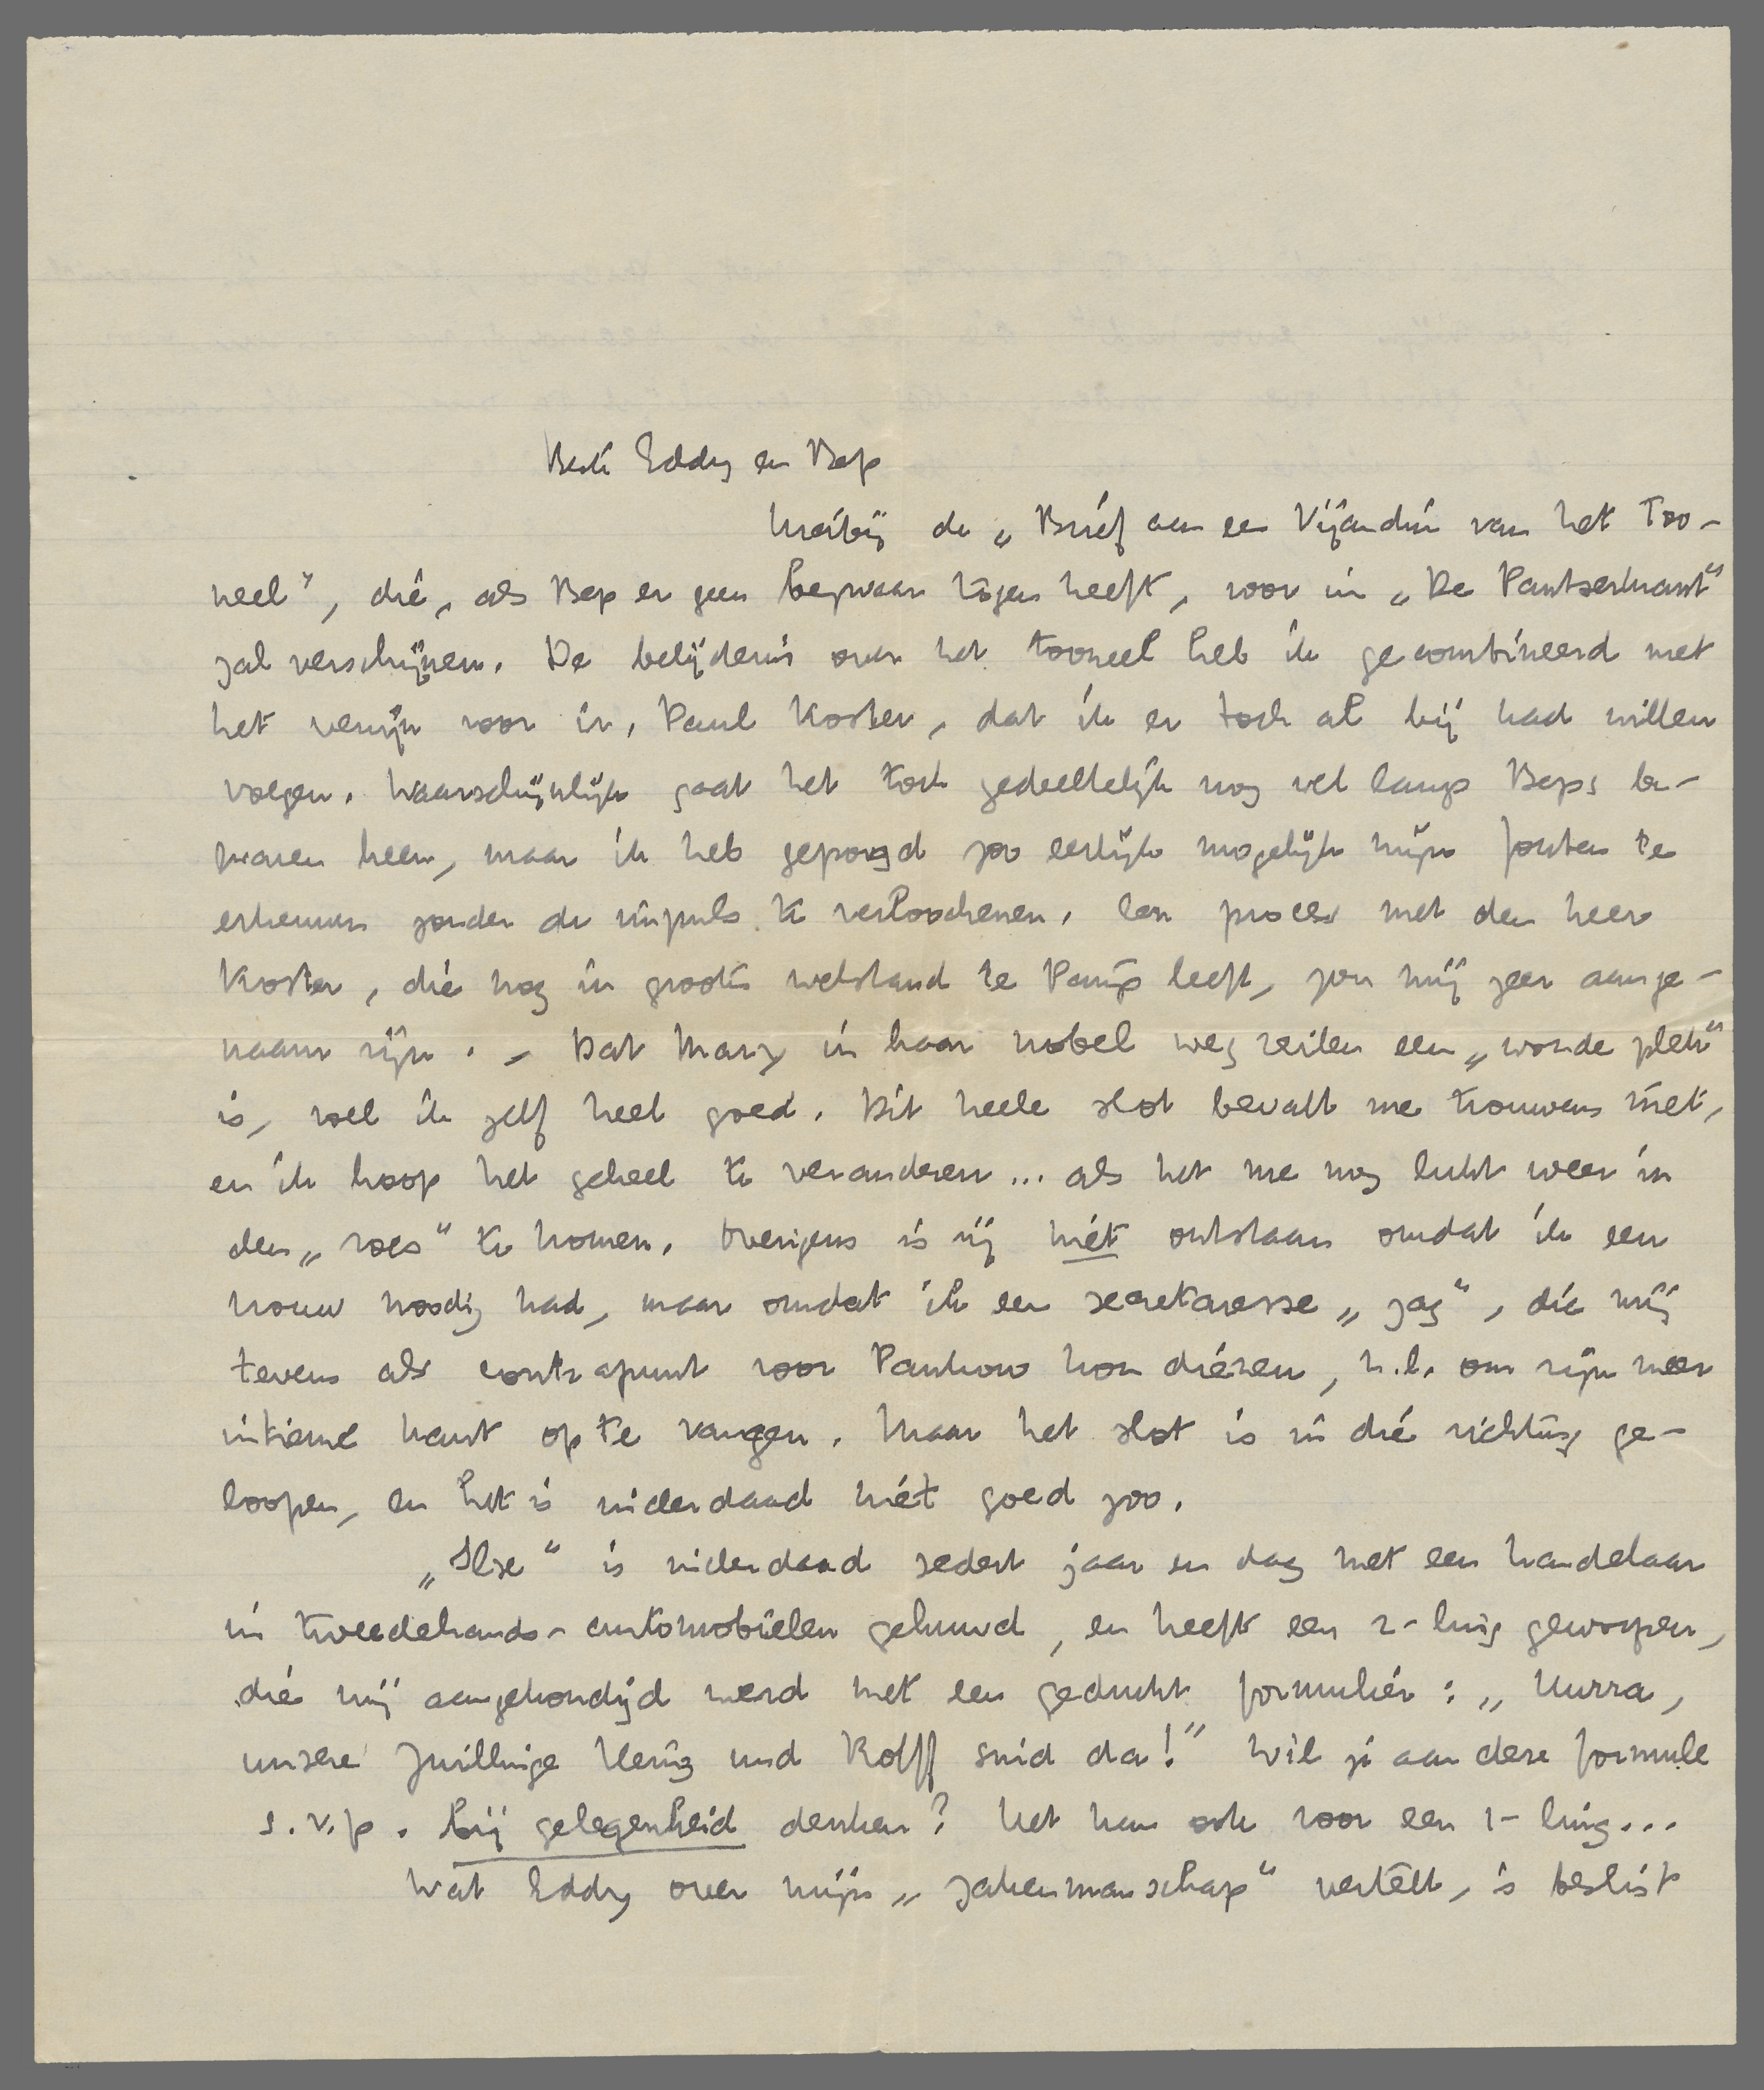 Beste Eddy en Bep
Hierbij de „Brief aan een Vijandin van het Too-
neel", die, als Bep er geen bezwaar tegen heeft, voor in „De Pantserkrant"
zal verschijnen. De belijdenis over het tooneel heb ik gecombineerd met
het venijn voor ir. Paul Koster, dat ik er toch al bij had willen
voegen. Waarschijnlijk gaat het toch gedeeltelijk nog wel langs Beps be-
zwaren heen, maar ik heb gepoogd zoo eerlijk mogelijk mijn fouten te
erkennen zonder de impuls te verloochenen. Een proces met den heer
Koster, die nog in grooten welstand te Parijs leeft, zou mij zeer aange-
naam zijn. – Dat Mary in haar nobel weg zeilen een „wonde plek"
is, voel ik zelf heel goed. Dit heele slot bevalt me trouwens niet,
en ik hoop het geheel te veranderen... als het me nog lukt weer in
den „roes" te komen. Overigens is zij niet ontstaan omdat ik een
vrouw noodig had, maar omdat ik een secretaresse „zag", die mij
tevens als contrapunt voor Pankow kon dienen, n.l. om zijn meer
intieme kant op te vangen. Maar het slot is in die richting ge-
loopen, en het is inderdaad niet goed zoo.
„Ilse" is inderdaad sedert jaar en dag met een handelaar
in tweedehands-automobielen gehuwd, en heeft een 2-ling geworpen,
die mij aangekondigd werd met een gedrukt formulier: „Hurra,
unsere Zwillinge Herig und Rolff sind da!" Wil je aan deze formule
s.v.p. bij gelegenheid denken? Het kan ook voor een 1-ling...
Wat Eddy over mijn „zakenmanschap" vertelt, is beslist